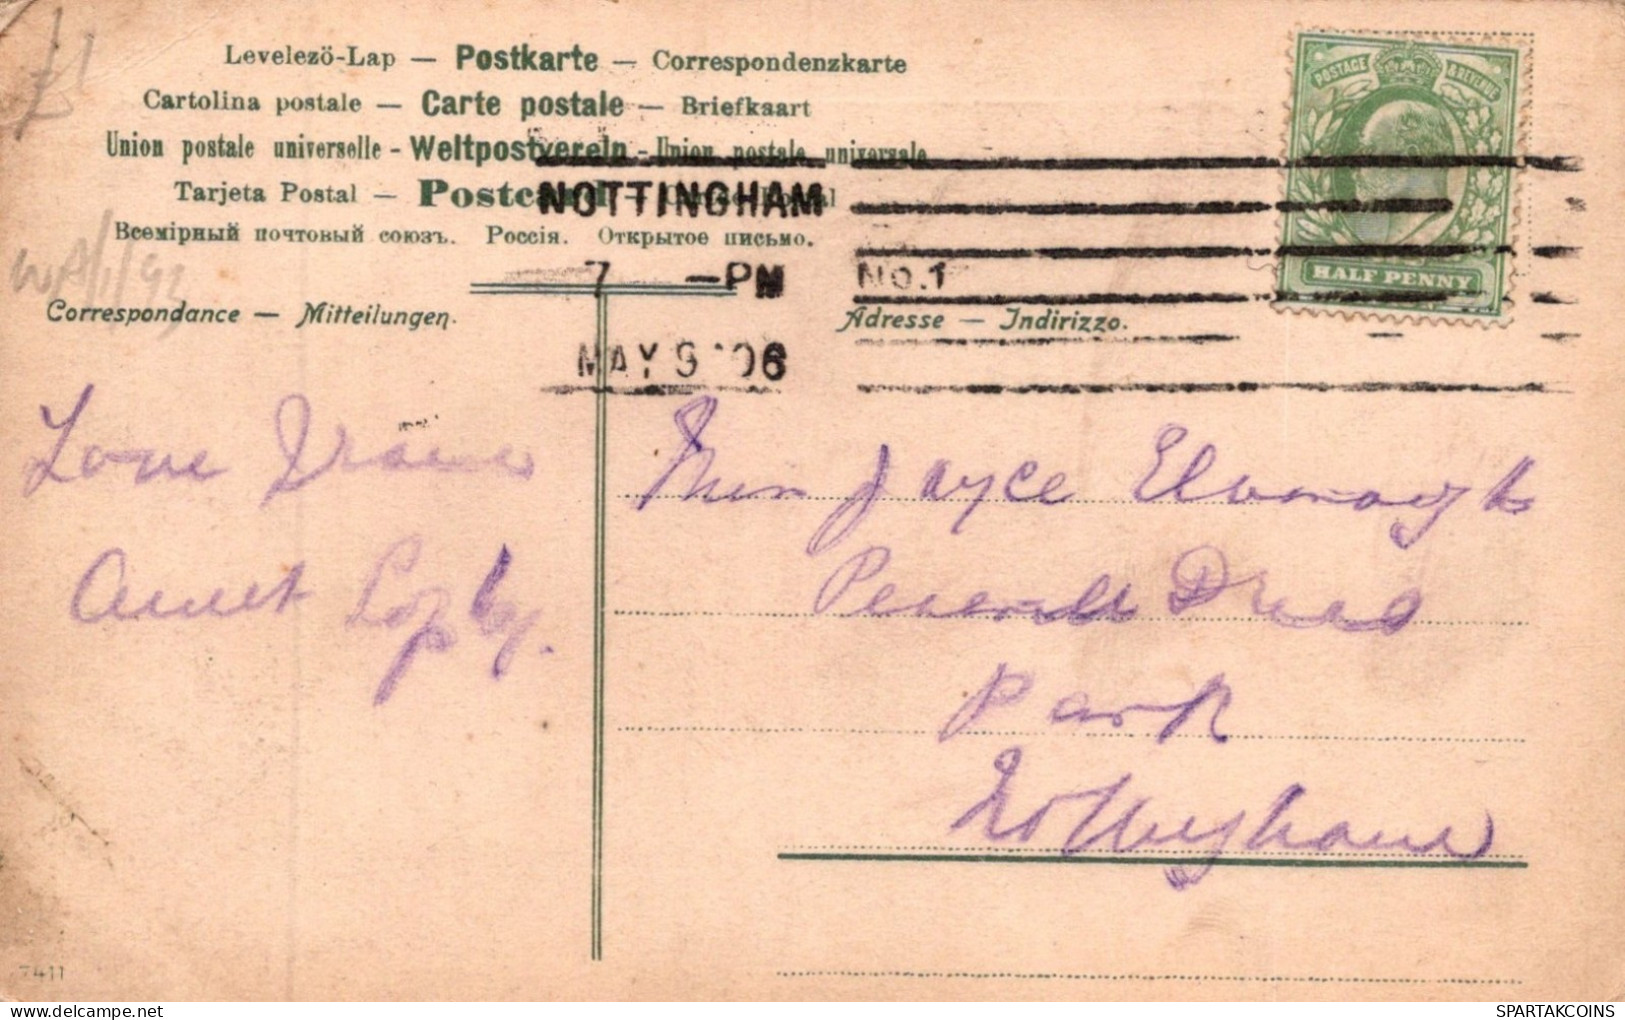 Levelezö-Lap — Postkarte — Correspondenzkarte
Cartolina postale — Carte postale — Briefkaart
Union postale universelle - Weltpostverein - Union postale universale
Tarjeta Postal — Postcard —
Всемірный почтовый союзъ. Россія. Открытое письмо.
POSTAGE & REVENUE
HALF PENNY
NOTTINGHAM
7 — PM No.1
MAY 9 '06
Correspondance — Mitteilungen.
Adresse — Indirizzo.
Love from
Aunt
Miss Joyce
Peverell Drive
Park
Nottingham
7411
SPARTAKCOINS